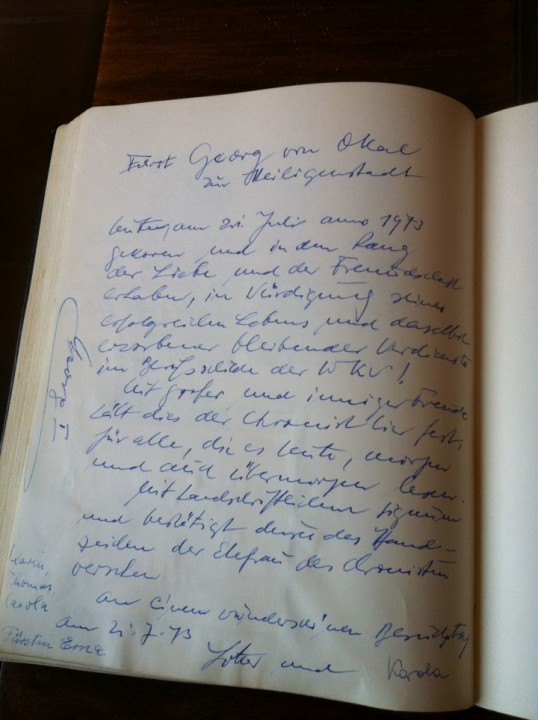 Fürst Georg von Okal
zur Heiligenstadt
am 21. Juli anno 1973
gekoren und in den Rang
der Liebe und der Freundschaft
erhaben, in Würdigung seines
erfolgreichen Lebens und daselbst
erworbener bleibender Verdienste
im der WKV!
Mit großer und inniger Freude
hält dies der Chronist hier fest,
für alle, die es heute, morgen
und auch übermorgen lesen.
Mit handschriftlichem Signum
und bestätigt durch das Hand-
zeichen der Ehefrau des Chronisten
versehen
an einem wunderschönen
am 21.7.73
und Karola
George I
Karin,
Thomas
Carola
Fürstin Erna